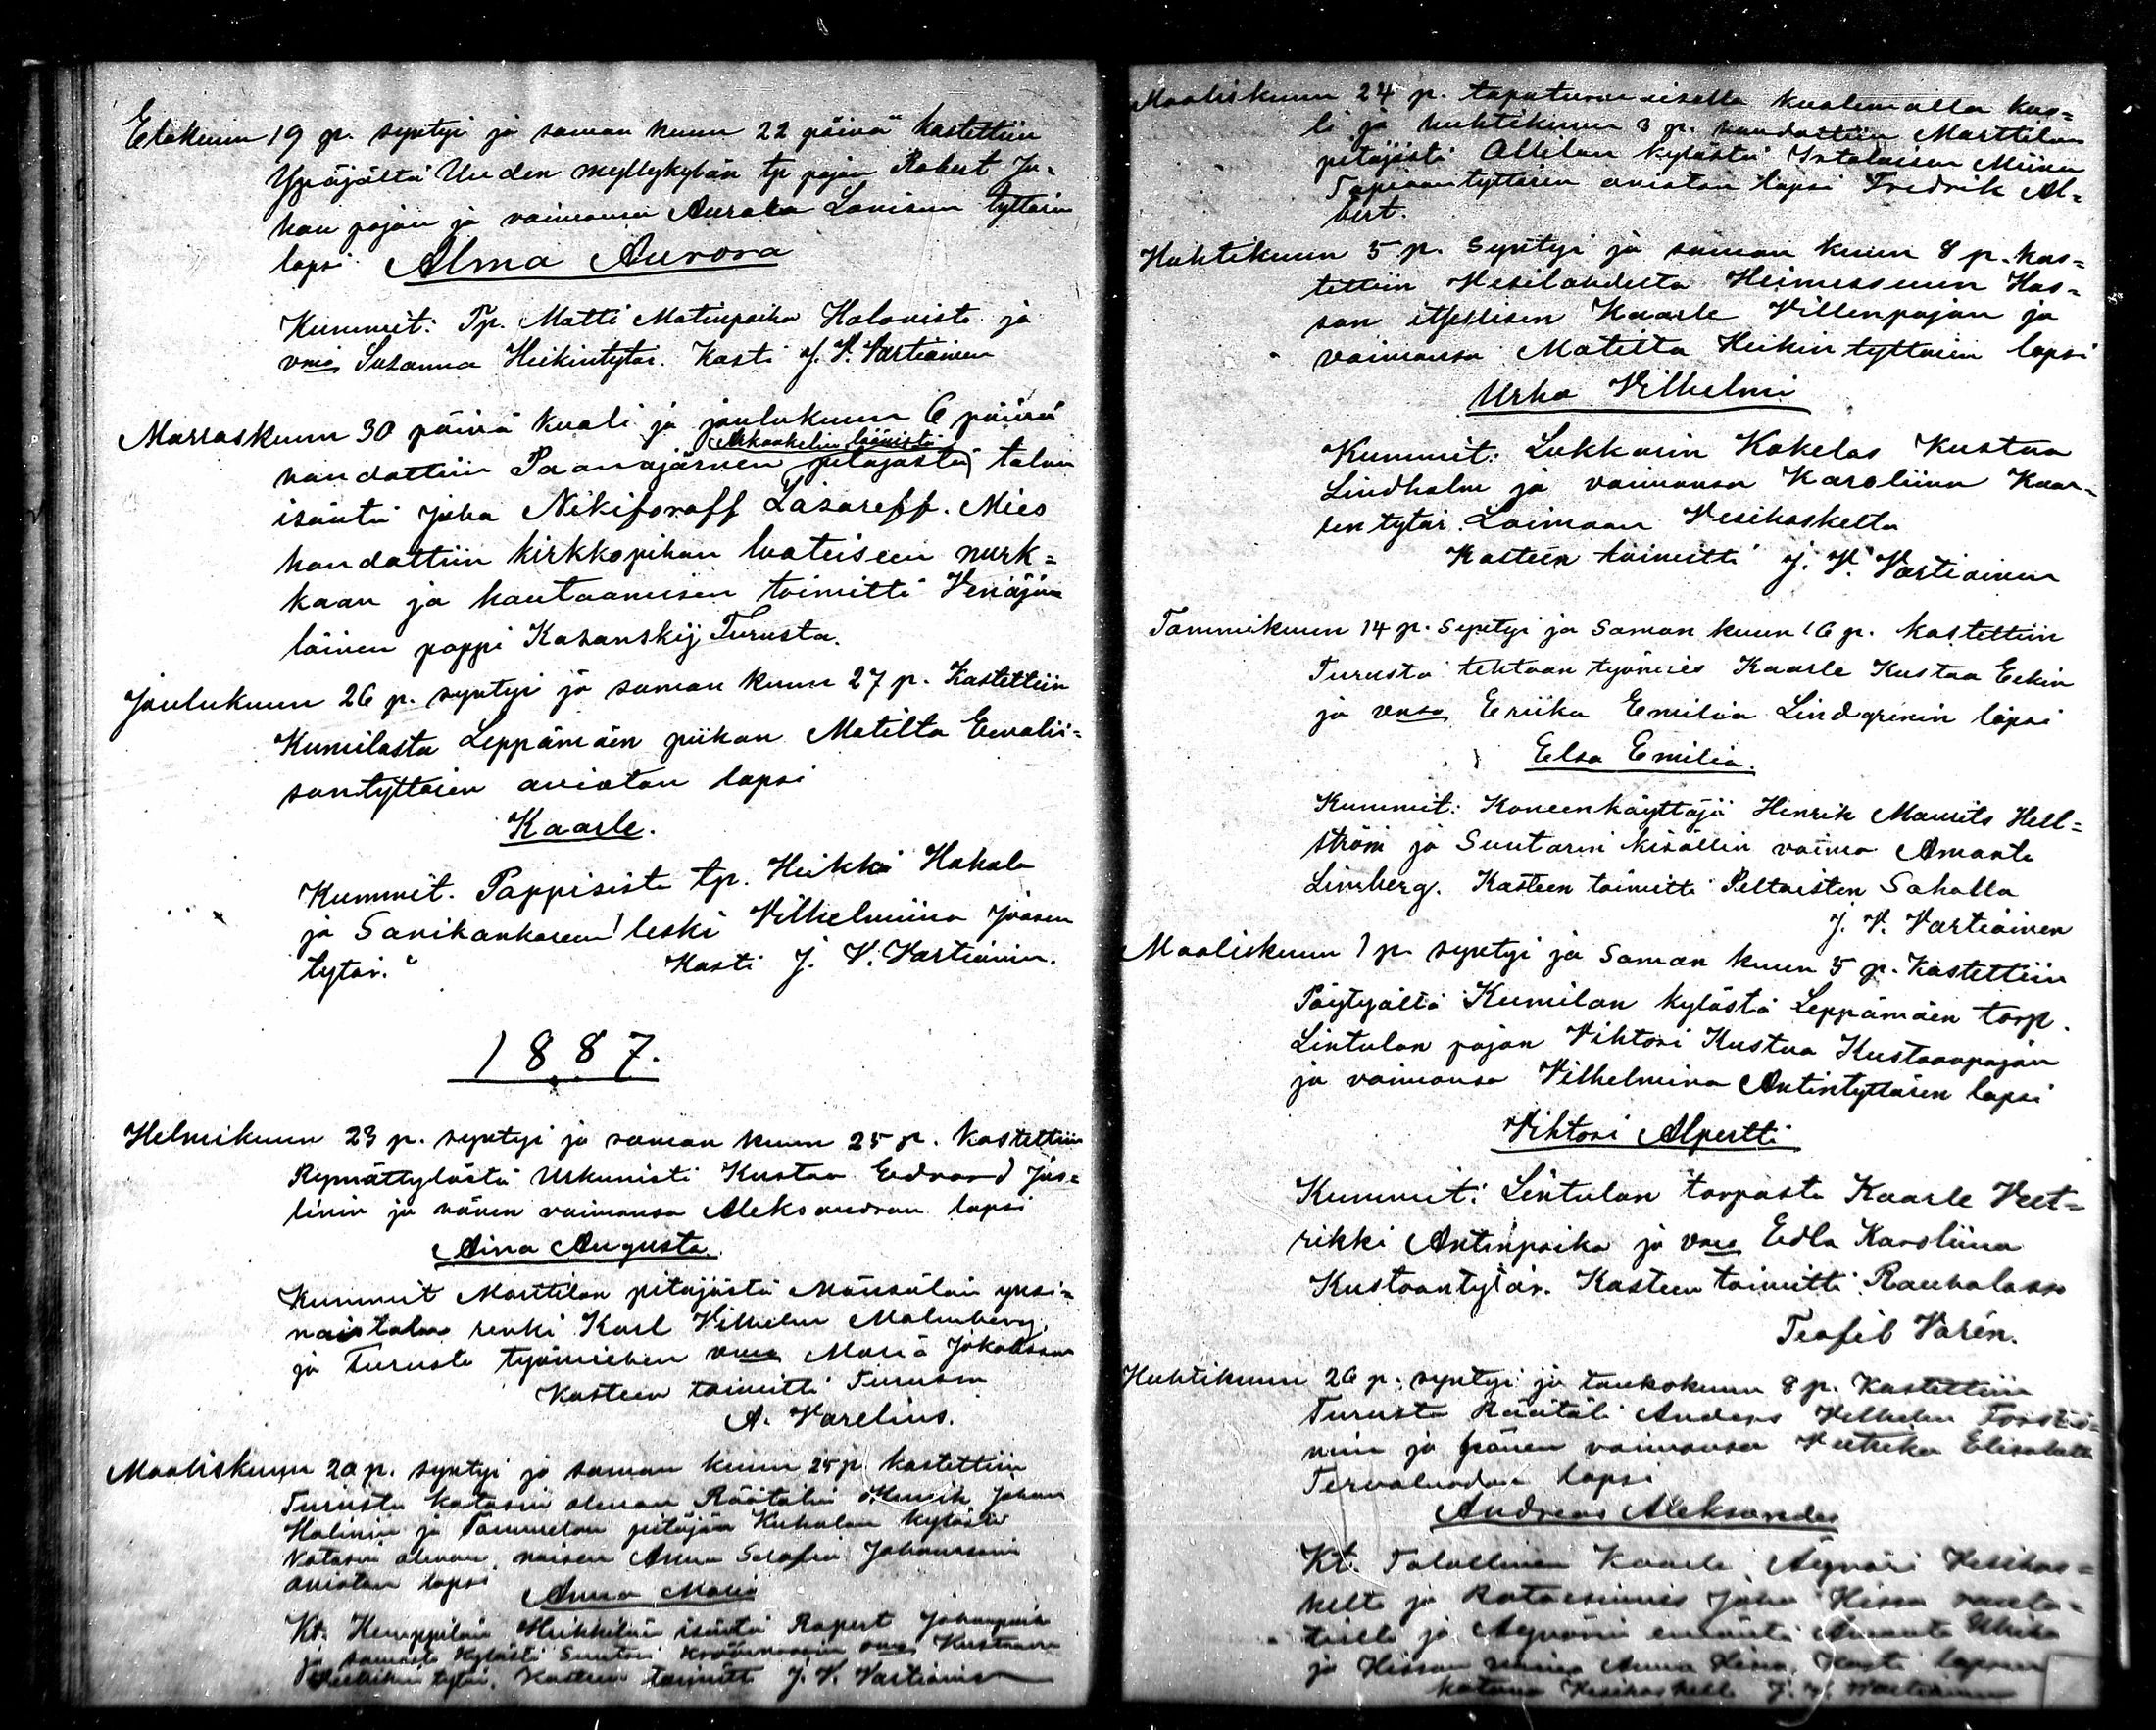 Elokuun 19 p. syntyi ja saman kuun 22 päivä kastettiin
Ypäjältä Uuden myllykylän tp pojan Robert Ju-
han pojan ja vaimonsa Aurora Lovisan tyttären
lapsi Alma Aurora
Kummit: Tp. Matti Matinpoika Halonisto ja
vmo Susanna Heikintytär. Kasti J. V. Vartiainen
Marraskuun 30 päivä kuoli ja joulukuun 6 päivä
Arkankelin läänistä
haudattiin Paanajärven pitäjästä talon
isäntä Juha Nikiforoff Lasareff. Mies
haudattiin kirkkopihan luoteiseen nurk=
kaan ja hautaamisen toimitti Venäjä
läinen pappi Kasanskij Turusta.
Joulukuun 26 p. syntyi ja saman kuun 27 p. Kastettiin
Kumilasta Leppämäen piikan Matilta Eevalii=
santyttären avioton lapsi
Kaarle.
Kummit. Pappisista tp. Heikki Hakala
ja Sanikankareen leski Vilhelmiina Joosen
tytär. Kasti J. V. Vartiainen.
1887.
Helmikuun 23 p. syntyi ja saman kuun 25 p. kastettiin
Rymättylästä Urkunisti Kustaa Edvard Jus=
linin ja hänen vaimonsa Aleksandran lapsi
Aina Augusta.
Kummit Marttilan pitäjästä yksi=
näistalon renki Karl Vilhelm Malmberg,
ja Turusta työmiehen vmo Maria Jakobsson
Kasteen toimitti Turussa
A. Varelius.
Maaliskuun 20 p. syntyi ja saman kuun 25 p. kastettiin
Turusta kotosin olevan Räätälin Henrik Johan
Halinin ja pitäjän kylästä
kotosin olevan naisen Anna Serafia Johanssonin
avioton lapsi Anna Maria
Kt. Kemppilän Heikkilän isäntä Ropert Juhanpoik
ja samasta kylästä Suutari vmo Kustaava
tytär. Kasteen toimitti J. V. Vartiainen
Maaliskuun 24 p. tapaturmaisella kuolemalla kuo=
li ja huhtikuun 3 p. haudattiin Marttilan
pitäjästä Ollilan kylästä Miina
tyttären avioton lapsi Fredrik Al=
bert.
Huhtikuun 5 p. syntyi ja saman kuun 8 p. kas=
tettiin Mesilahdesta Heinussuun Has=
san itsellisen Kaarle Villenpojan ja
vaimonsa Matilta Heikin tyttären lapsi
Urho Vilhelmi
Kummit: Lukkarin Kokelas Kustaa
Lindholm ja vaimonsa Karoliina Kaar-
len tytär. Loimaan Vesikoskelta
Kasteen toimitti J. V. Vartiainen
Tammikuun 14 p. syntyi ja saman kuun 16 p. kastettiin
Turusta tehtaan työmies Kaarle Kustaa Eekin
ja vmsa Eriika Emilia Lindgrenin lapsi
Elsa Emilia.
Kummit: Koneenkäyttäjä Hinrik Maurits Hell=
ström ja Suutarin kisällin vaimo Amanta
Limberg. Kasteen toimitti Peltoisten Sahalla
J. V. Vartiainen
Maaliskuun 1 p. syntyi ja saman kuun 5 p. kastettiin
Pöytyältä Kumilan kylästä Leppämäen torp.
Lintulan pojan Vihtori Kustaa Kustaanpojan
ja vaimonsa Vilhelmina Antintyttären lapsi
Vihtori Alpertti
Kummit: Lintulan torpasta Kaarle Veet=
rikki Antinpoika ja vmo Edla Karoliina
Kustaantytär. Kasteen toimitti Rauhalassa
Teofil Varén.
Huhtikuun 26 p. syntyi ja toukokuun 8 p. Kastettiin
Turusta Räätäli Anders Vilhelm
ja hänen vaimonsa Elisabeth
lapsi
Andreas Aleksander
Kt. Talollinen Kaarle Äyväri Vesikos=
kelta ja Ratamies Juha Hissa
ja Äyvärin emäntä Amanta Ulrika
ja Hissan vaimo Anna Hissa. Kasti lapsen
kotona Vesikoskella J. V. Vartiainen